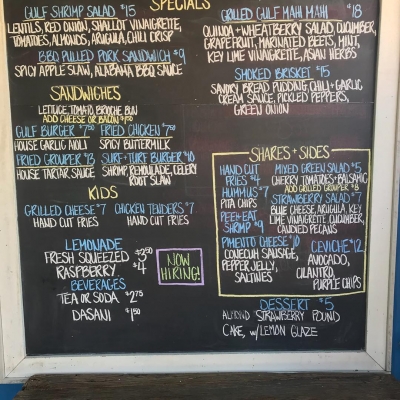 SPECIALS
GULF SHRIMP SALAD $15
LENTILS, RED ONION, SHALLOT VINAIGRETTE,
TOMATOES, ALMONDS, ARUGULA, CHILI CRISP
BBQ PULLED PORK SANDWICH $9
SPICY APPLE SLAW, ALABAMA BBQ SAUCE
GRILLED GULF MAHI MAHI $18
QUINOA + WHEATBERRY SALAD, CUCUMBER,
GRAPEFRUIT, MARINATED BEETS, MINT,
KEY LIME VINAIGRETTE, ASIAN HERBS
SMOKED BRISKET $15
SAVORY BREAD PUDDING, CHILI + GARLIC
CREAM SAUCE, PICKLED PEPPERS,
GREEN ONION
SANDWICHES
LETTUCE, TOMATO, BRIOCHE BUN
ADD CHEESE OR BACON $1.50
GULF BURGER $7.50 FRIED CHICKEN $7.50
HOUSE GARLIC AIOLI SPICY BUTTERMILK
FRIED GROUPER $13 SURF+TURF BURGER $10
HOUSE TARTAR SAUCE SHRIMP, REMOULADE, CELERY
ROOT SLAW
KIDS
GRILLED CHEESE $7 CHICKEN TENDERS $7
HAND CUT FRIES HAND CUT FRIES
LEMONADE
FRESH SQUEEZED $3.50
RASPBERRY $4
BEVERAGES
TEA OR SODA $2.75
DASANI $1.50
NOW
HIRING!
SHARES + SIDES
HAND CUT
FRIES $4
HUMMUS $7
PITA CHIPS
PEEL+EAT
SHRIMP $9
PIMENTO CHEESE $10
CONECUH SAUSAGE,
PEPPER JELLY,
SALTINES
MIXED GREEN SALAD $5
CHERRY TOMATOES+BALSAMIC
ADD GRILLED GROUPER $8
STRAWBERRY SALAD $7
BLUE CHEESE, ARUGULA, KEY
LIME VINAIGRETTE, CUCUMBER,
CANDIED PECANS
CEVICHE $12
AVOCADO,
CILANTRO,
PURPLE CHIPS
DESSERT $5
ALMOND STRAWBERRY POUND
CAKE, W/LEMON GLAZE